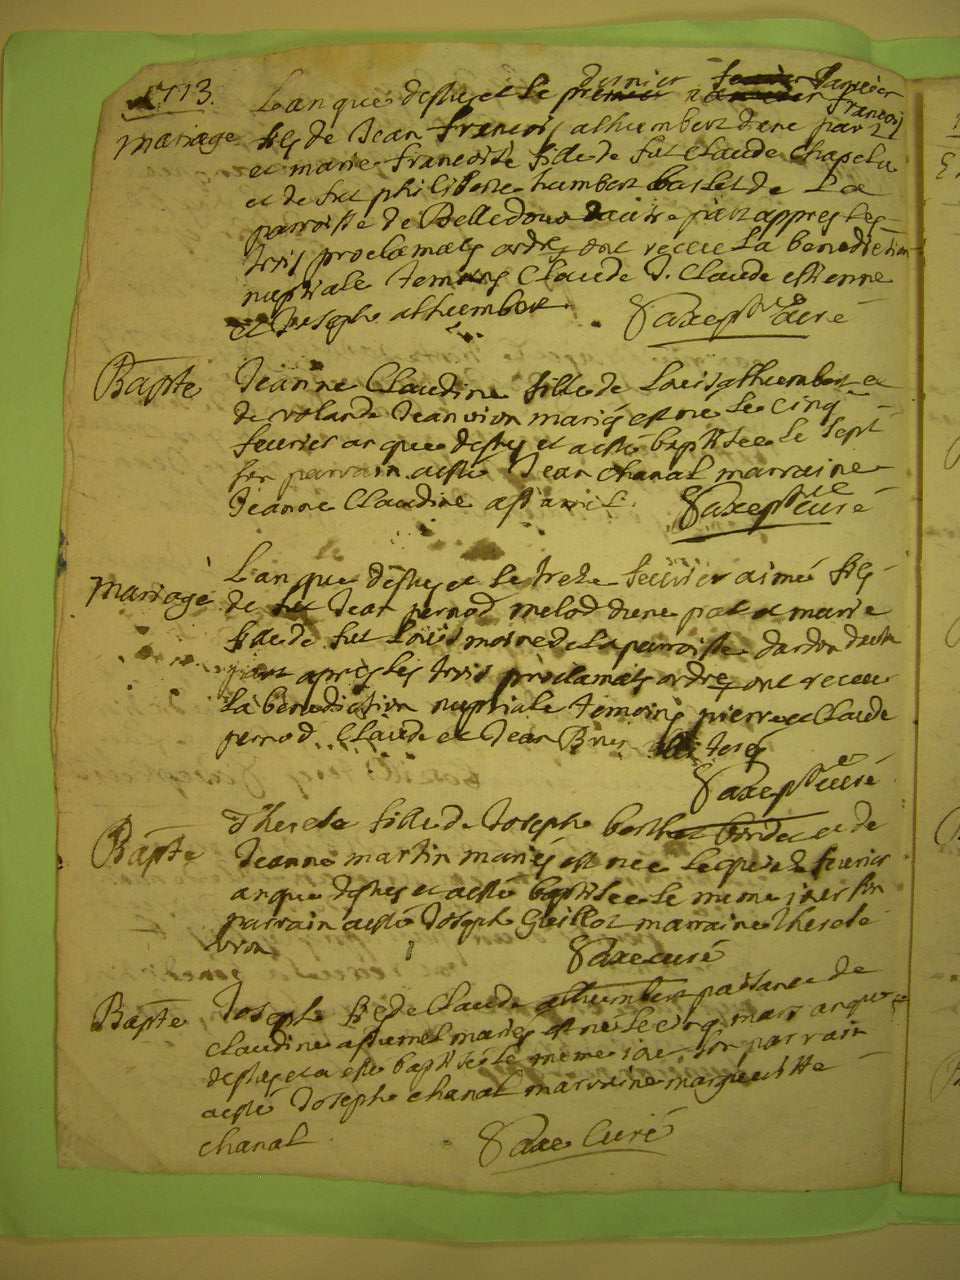 1713.
mariage
Lan que dessus et le dernier janvier francois
fils de Jean francois athumbert dune part
et marie francoise fille de fut Claude Chapelu
et de fut philiberte humbert de La
parroisse de Belledoux dautre part appres les
trois proclamats ordres ont receu La benediction
nuptiale temoins Claude J. Claude estienne
et Joseph athumbert. Saxe ptre curé
Bapte
Jeanne Claudine fille de Louis athumbert et
de rolande Jeanvion mariés est nee Le cinq
feurier an que dessus et a esté baptisee Le sept
son parrain a esté Jean Chanal marraine
Jeanne Claudine
Saxe ptre curé
Mariage
Lan que dessus et le treze feurier aimé fils
de fut Jean pernod melod dune part et marie
fille de fut Louis moine de La parroisse dardon dautre
part apres Les trois proclamats ordres ont receu
La benediction nuptiale temoins pierre et Claude
pernod. Claude et Jean
Saxe ptre curé
Bapte
Therese fille de Joseph et de
Jeanne martin mariés est nee Le feurier
an que dessus et a esté baptisee Le meme jour son
parrain a esté Joseph Guillot marraine Therese
Saxe curé
Bapte
Joseph fils de Claude athumbert et de
Claudine mariés est né Le cinq mars an que
dessus et a esté baptisé Le meme jour son parrain
a esté Joseph chanal marraine margueritte
chanal.
Saxe Curé